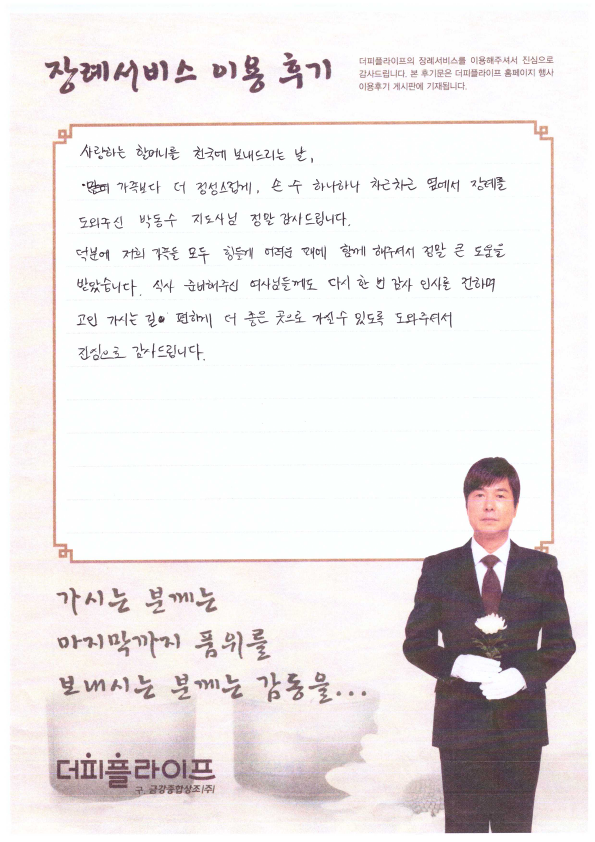 장례서비스 이용 후기
더피플라이프의 장례서비스를 이용해주셔서 진심으로
감사드립니다. 본 후기문은 더피플라이프 홈페이지 행사
이용후기 게시판에 기재됩니다.
사랑하는 할머니를 천국에 보내드리는 날,
가족보다 더 정성스럽게, 손 수 하나하나 차근차근 옆에서 장례를
도와주신 박동수 지도사님 정말 감사드립니다.
덕분에 저희 가족들 모두 힘들게 어려운 때에 함께 해주셔서 정말 큰 도움을
받았습니다. 식사 준비해주신 여사님들께도 다시 한 번 감사 인사를 전하며
고인 가시는 길이 편하게 더 좋은 곳으로 가실수 있도록 도와주셔서
진심으로 감사드립니다.
가시는 분께는
마지막까지 품위를
보내시는 분께는 감동을...
더피플라이프
구. 금강종합상조(주)